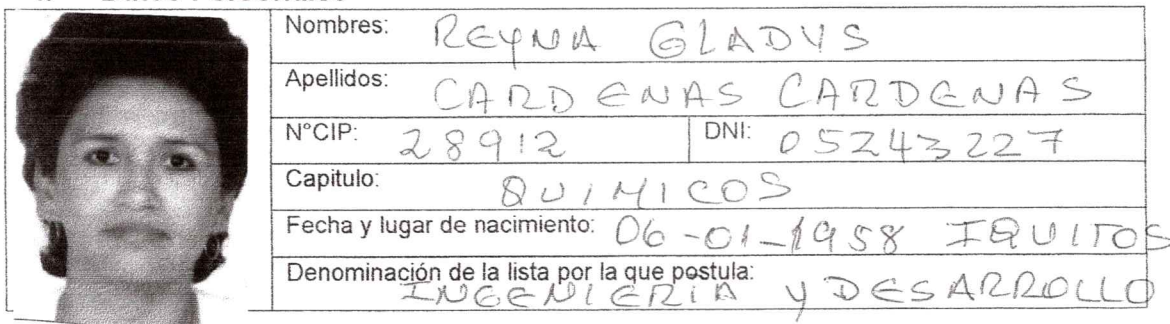 Nombres: REYNA GLADYS
Apellidos: CARDENAS CARDENAS
N°CIP: 28912 DNI: 05243227
Capitulo: QUIMICOS
Fecha y lugar de nacimiento: 06-01-1958 IQUITOS
Denominación de la lista por la que postula: INGENIERIA Y DESARROLLO